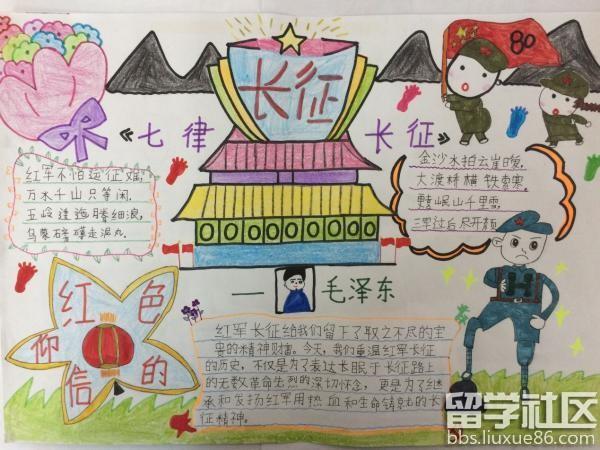 长征
80
《七律
长征》
红军不怕远征难,
万水千山只等闲,
五岭逶迤腾细浪,
乌蒙磅礴走泥丸。
金沙水拍云崖暖,
大渡桥横铁索寒。
更喜岷山千里雪,
三军过后尽开颜
——毛泽东
红色的信仰
红军长征给我们留下了取之不尽的宝
贵的精神财富。今天,我们重温红军长征
的历史,不仅是为了表达长眠于长征路上
的无数革命先烈的深切怀念,更是为了继
承和发扬红军用热血和生命铸就的长
征精神。
留学社区
bbs.liuxue86.com